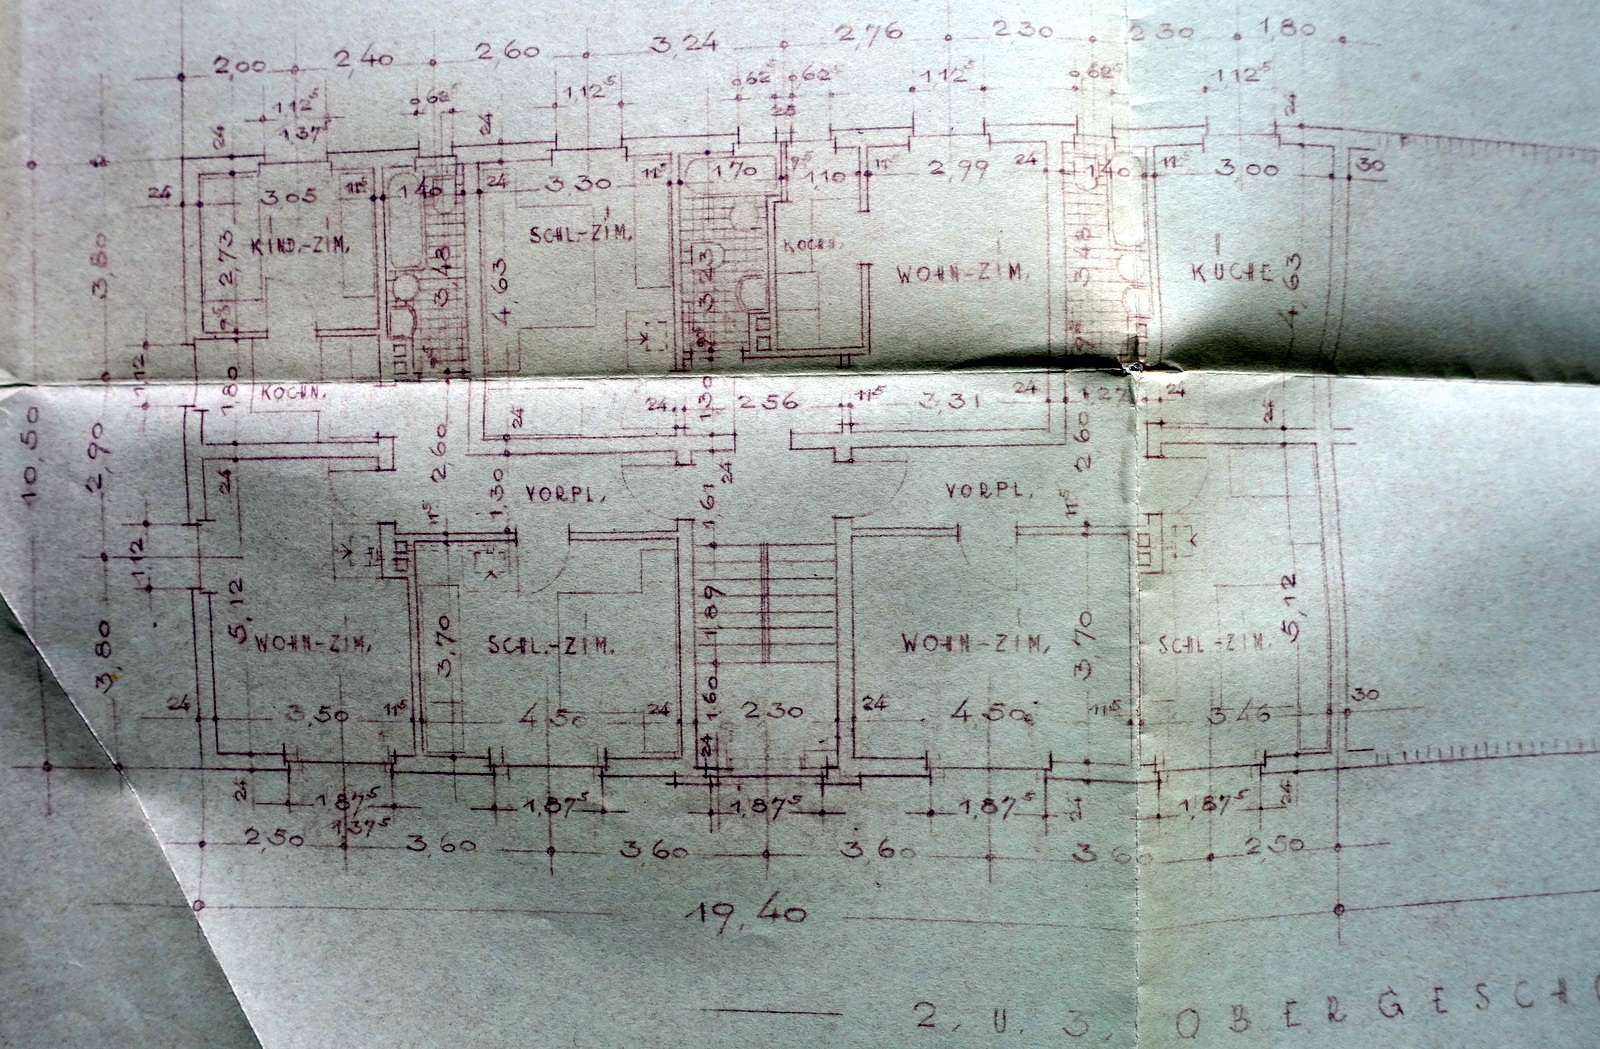 2,00 2,40 2,60 3,24 2,76 2,30 2,30 1,80
1,12⁵ 62⁵ 1,12⁵ 62⁵ 62⁵ 1,12⁵ 62⁵ 1,12⁵
1,37⁵ 25
24 24 24
24 3,05 11⁵ 1,40 24 3,30 11⁵ 1,70 1,10 11⁵ 2,99 24 1,40 11⁵ 3,00 30
KIND.-ZIM. SCHL-ZIM. KOCHN. WOHN-ZIM. KÜCHE
3,80 2,73 3,48 4,63 3,23 3,48 4,63
1,12 1,80 KOCHN. 24 1,30 2,56 11⁵ 3,31 24 1,27 24
10,50 2,90 24 2,60 24 24 2,60 24
1,30 VORPL. 1,61 VORPL.
11⁵ 11⁵
1,12 5,12 1,89 5,12
3,80 WOHN-ZIM. 3,70 SCHL.-ZIM. WOHN-ZIM. 3,70 SCHL-ZIM.
24 3,50 11⁵ 4,50 24 1,60 2,30 24 4,50 11⁵ 3,46 30
24 24 24 24
1,87⁵ 1,87⁵ 1,87⁵ 1,87⁵ 1,87⁵
1,37⁵
2,50 3,60 3,60 3,60 3,60 2,50
19,40
2. U. 3. OBERGESCH